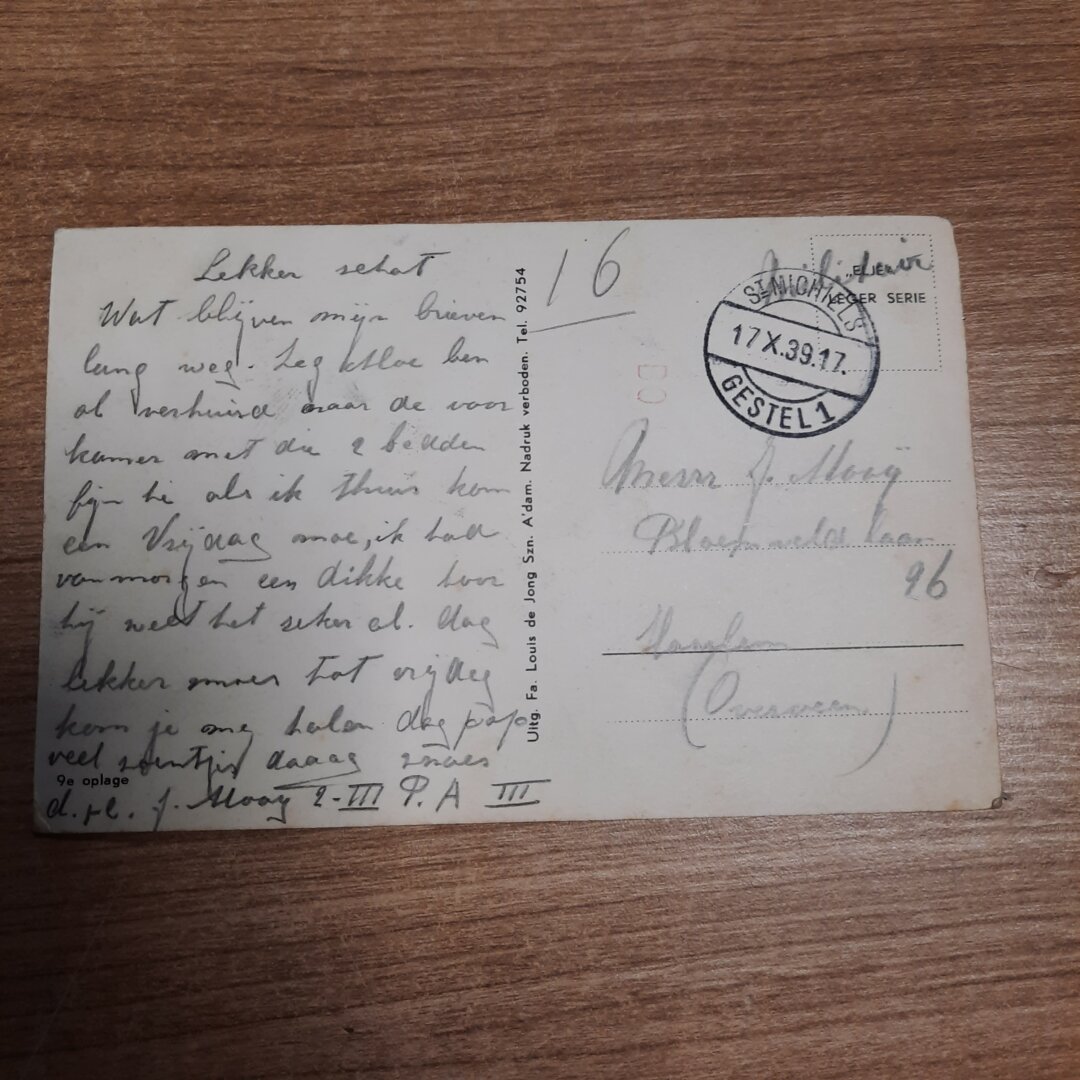 Lekker schat
Wat blijven mijn brieven
lang weg. Zeg ben
al verhuisd naar de voor
kamer met die 2 bedden
fijn hé als ik thuis kom
een Vrijdag moe, ik had
vanmorgen een dikke voor
hij weet het zeker al. dag
lekker moes tot vrijdag
kom je me halen dag pap
veel zoentjes daaag snoes
9e oplage
d.pl. J. Mooy 2-III P.A III
Uitg. Fa. Louis de Jong Szn. A'dam. Nadruk verboden. Tel. 92754
16
Militair
„ELJE"
LEGER SERIE
ST MICHIELS
17 X.39.17.
GESTEL 1
J. Mooÿ
Bloemveldlaan
96
Haarlem
(Overveen)